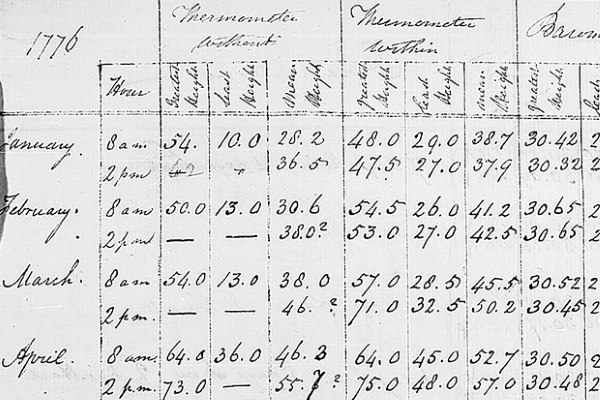 1776
Thermometer without
Thermometer within
Barom
Hour
Greatest Height
Least Height
Mean Height
Greatest Height
Least Height
Mean Height
Greatest Height
Least
January. 8 am 54. 10.0 28.2 48.0 29.0 38.7 30.42 2
2 pm 36.5 47.5 27.0 37.9 30.32 2
February. 8 am 50.0 13.0 30.6 54.5 26.0 41.2 30.65 2
2 pm — — 38.0? 53.0 27.0 42.5 30.65 2
March. 8 am 54.0 13.0 38.0 57.0 28.5 45.5 30.52 2
2 pm. — — 46. ? 71.0 32.5 50.2 30.45 2
April. 8 am 64.0 36.0 46.3 64.0 45.0 52.7 30.50 2
2 p.m. 73.0 — 55.7? 75.0 48.0 57.0 30.48 2